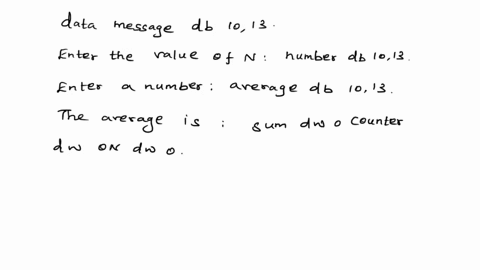 data message db 10,13.
Enter the value of N: number db 10,13.
Enter a number: average db 10,13.
The average is : sum dw 0 Counter
dw 0N dw 0.